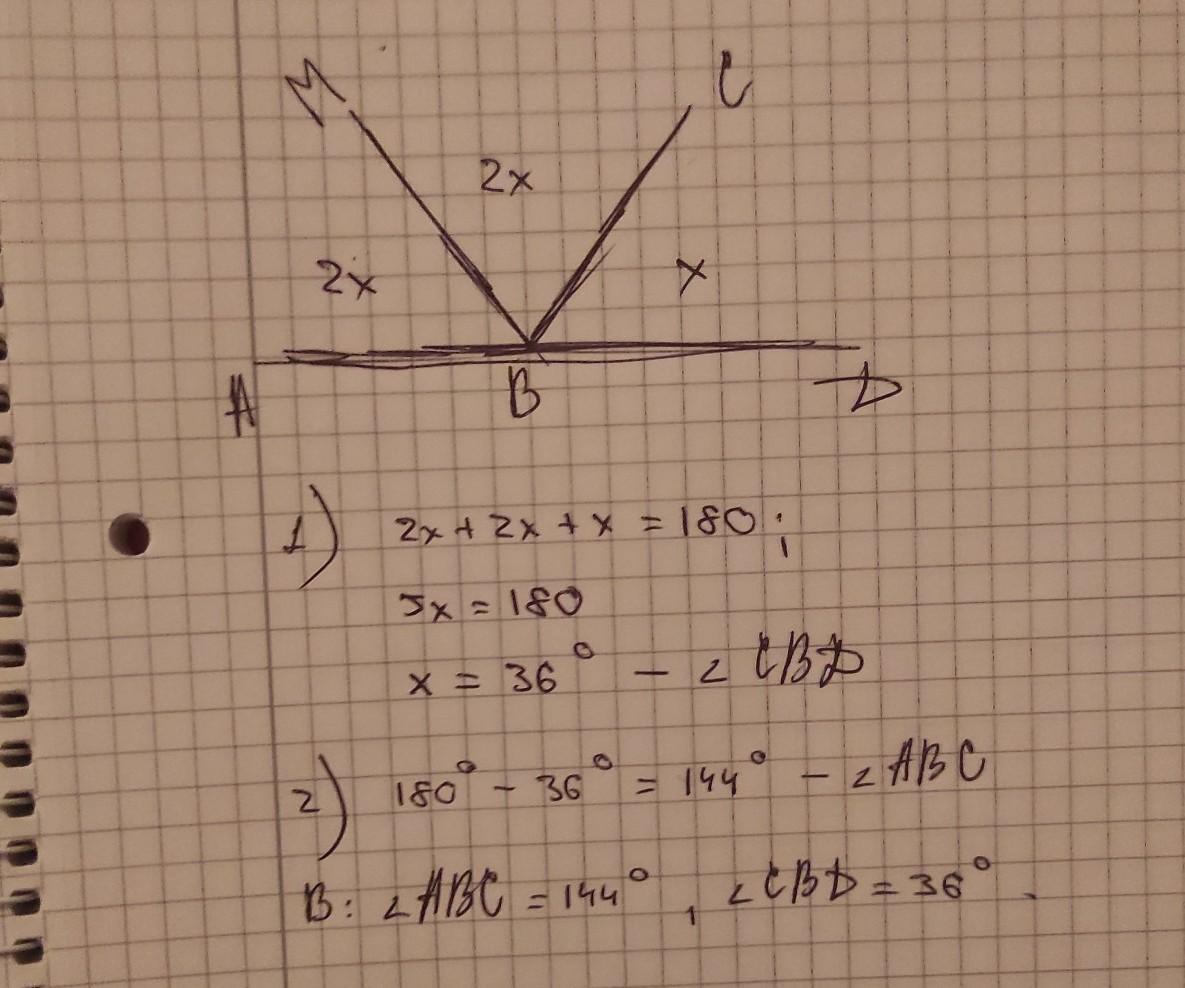 M C
2x
2x x
A B D
1) 2x + 2x + x = 180;
5x = 180
x = 36° - ∠CBD
2) 180° - 36° = 144° - ∠ABC
В: ∠ABC = 144°, ∠CBD = 36°.